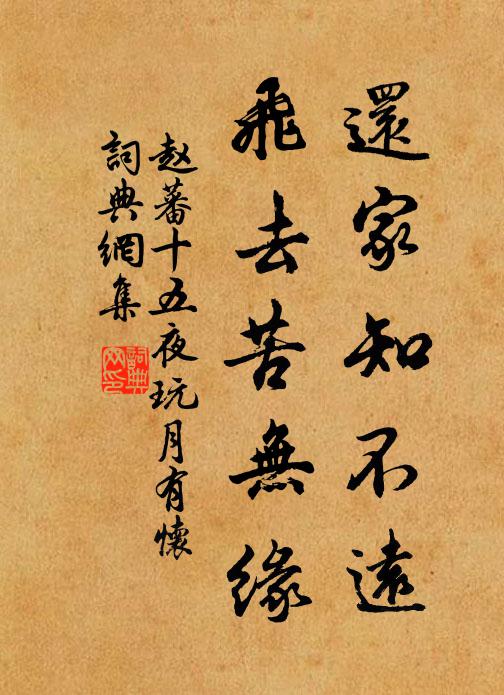 還家知不遠
飛去苦無緣
赵蕃十五夜玩月有懷
詞典網集
詞典
网印